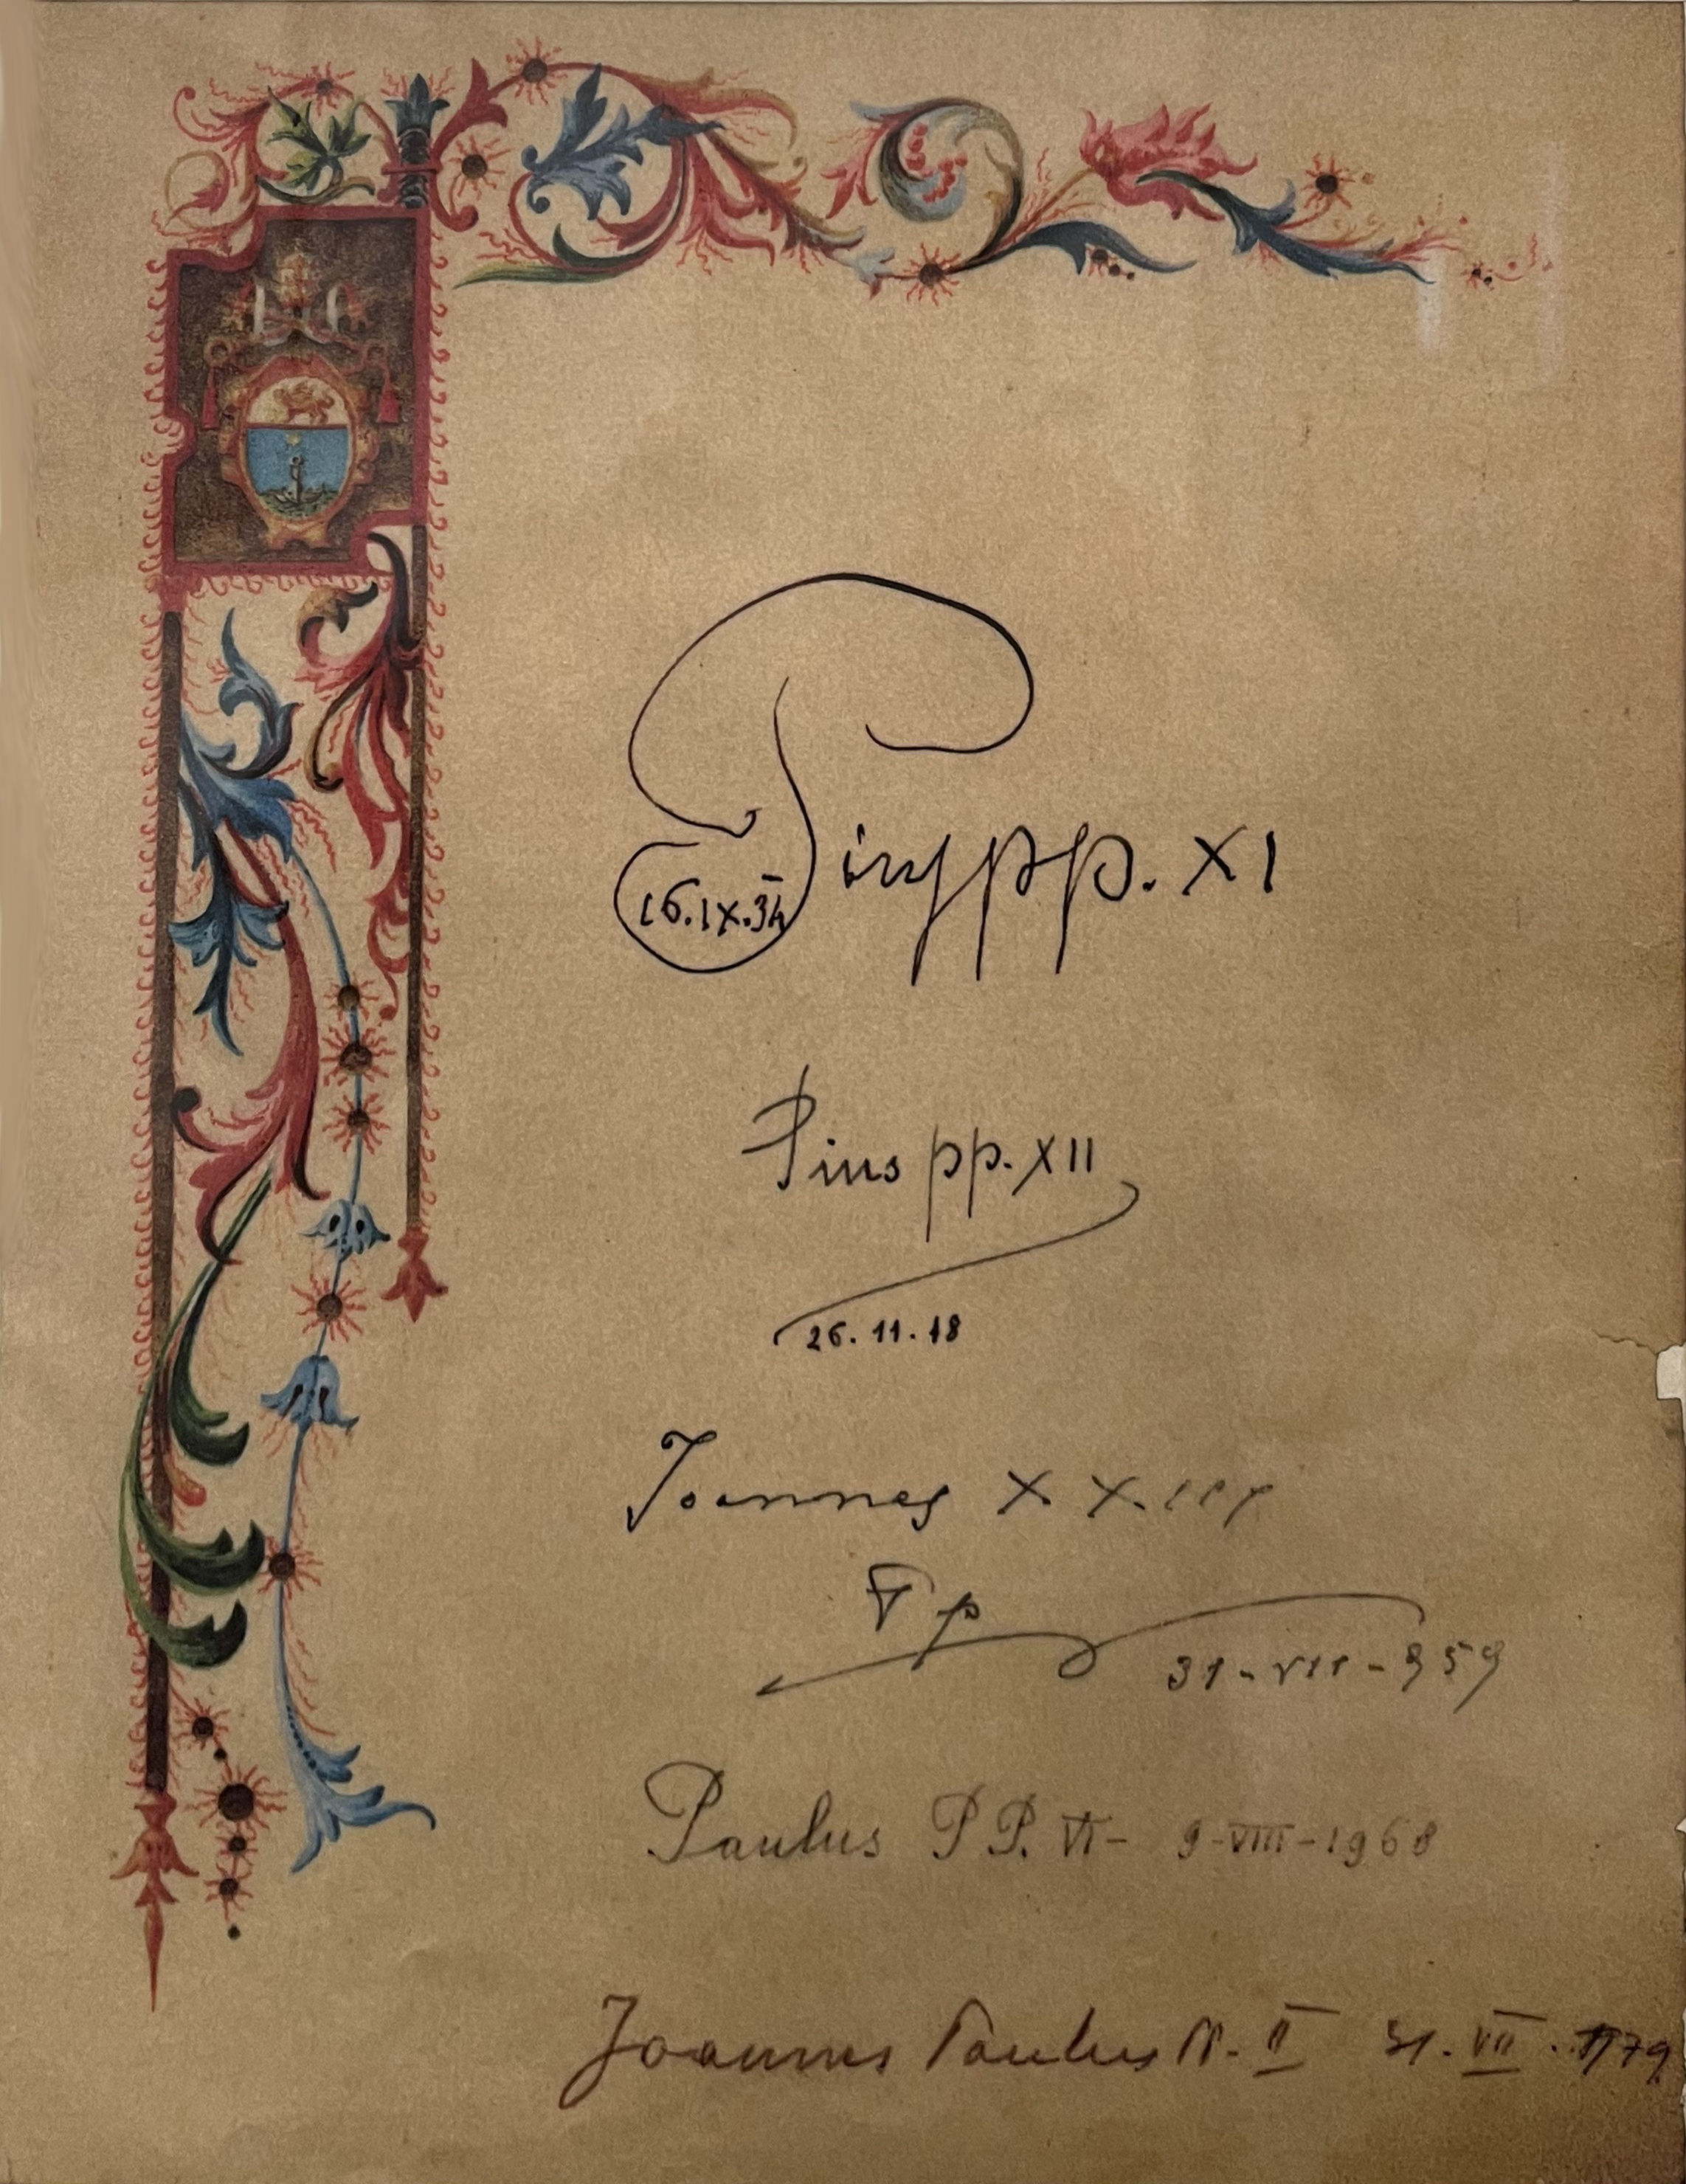 Pius pp. XI
16.IX.34
Pius pp. XII
26.11.48
Joannes XXIII
Pp
31-VII-959
Paulus PP. VI - 9-VIII-1968
Joannes Paulus PP. II 31.VII.1979